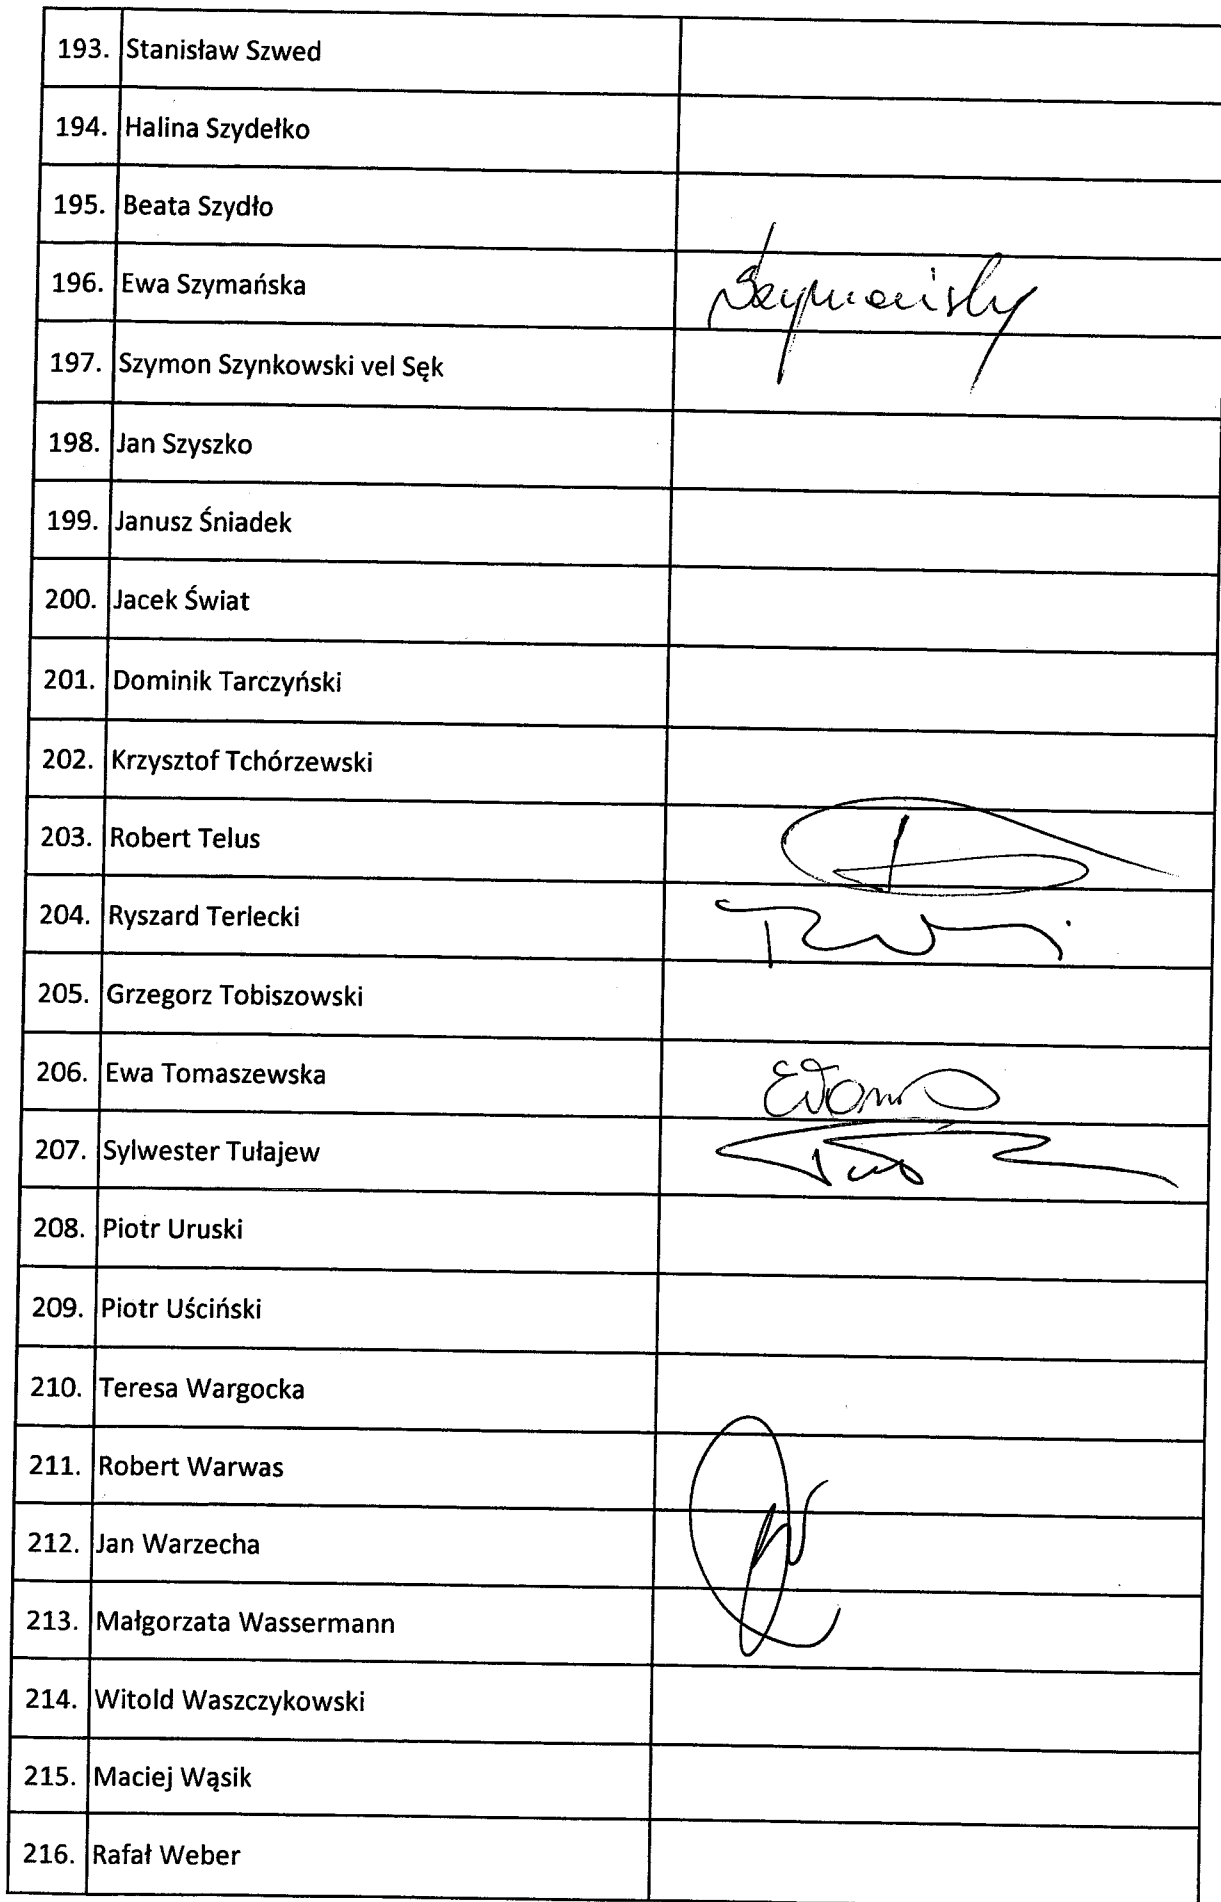 193. Stanisław Szwed
194. Halina Szydełko
195. Beata Szydło
196. Ewa Szymańska
197. Szymon Szynkowski vel Sęk
198. Jan Szyszko
199. Janusz Śniadek
200. Jacek Świat
201. Dominik Tarczyński
202. Krzysztof Tchórzewski
203. Robert Telus
204. Ryszard Terlecki
205. Grzegorz Tobiszowski
206. Ewa Tomaszewska
207. Sylwester Tułajew
208. Piotr Uruski
209. Piotr Uściński
210. Teresa Wargocka
211. Robert Warwas
212. Jan Warzecha
213. Małgorzata Wassermann
214. Witold Waszczykowski
215. Maciej Wąsik
216. Rafał Weber